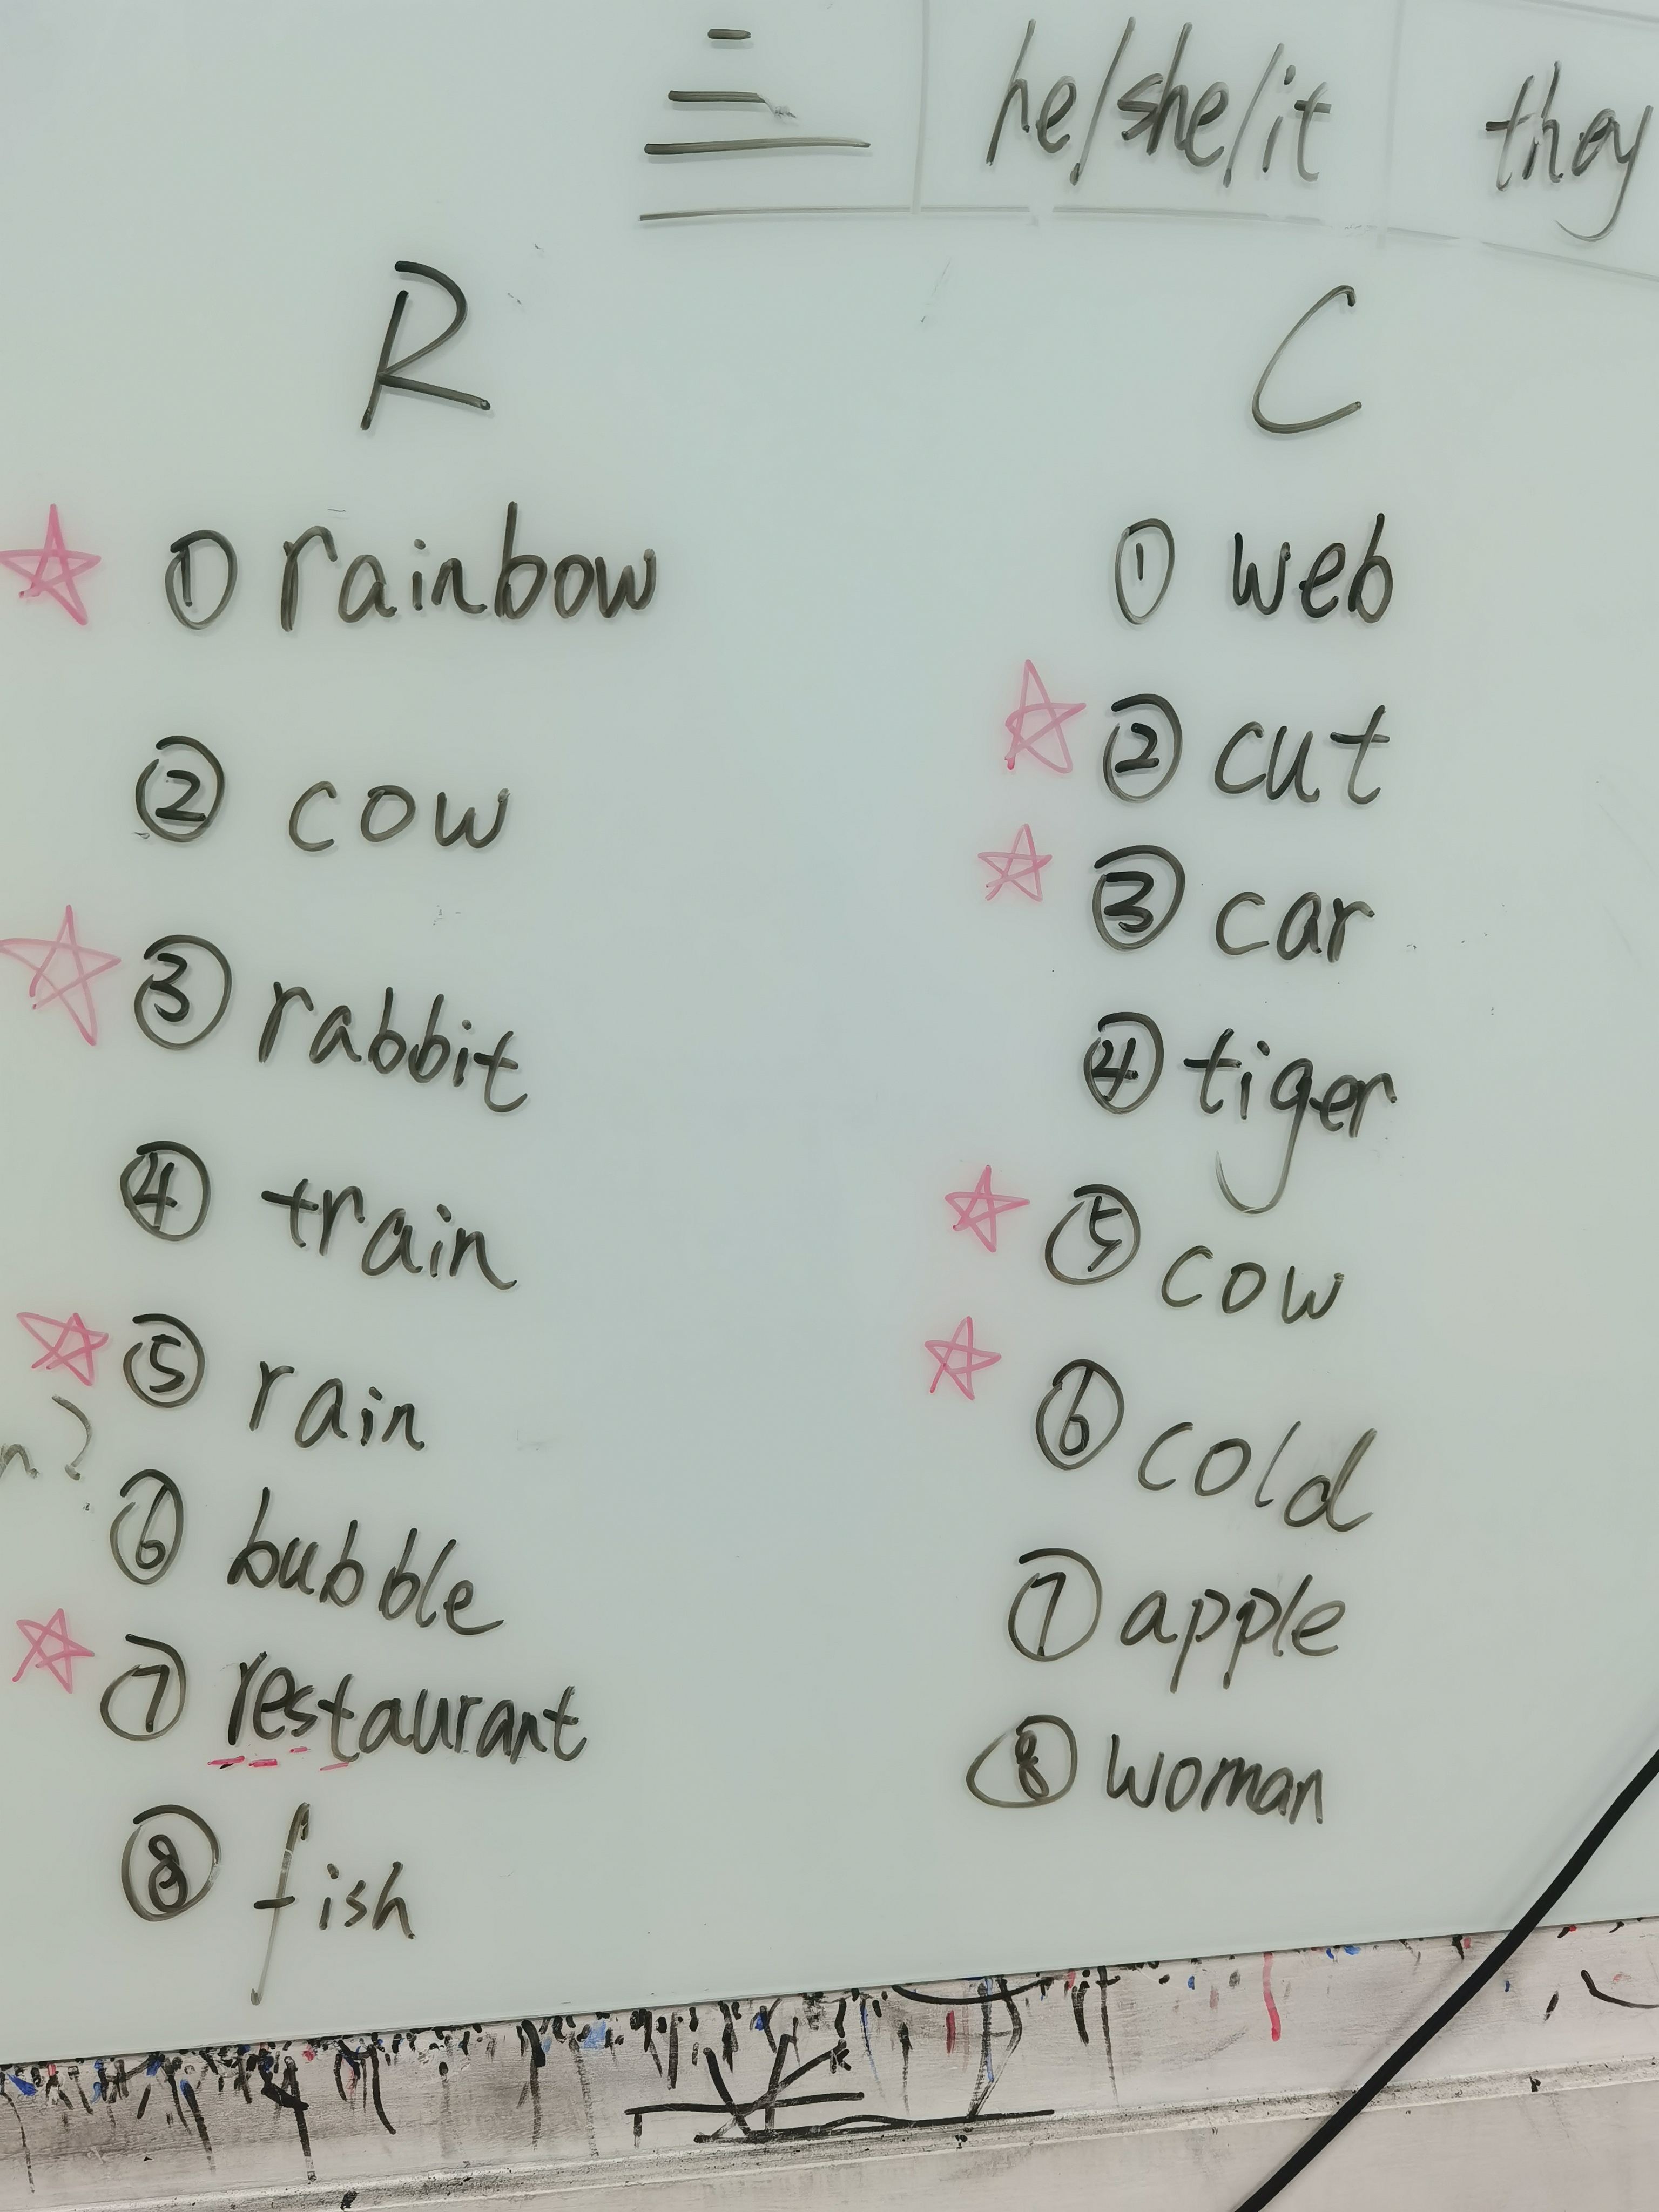 三 he/she/it they
R
① rainbow
② cow
③ rabbit
④ train
⑤ rain
⑥ bubble
⑦ restaurant
⑧ fish
C
① web
② cut
③ car
④ tiger
⑤ cow
⑥ cold
⑦ apple
⑧ woman